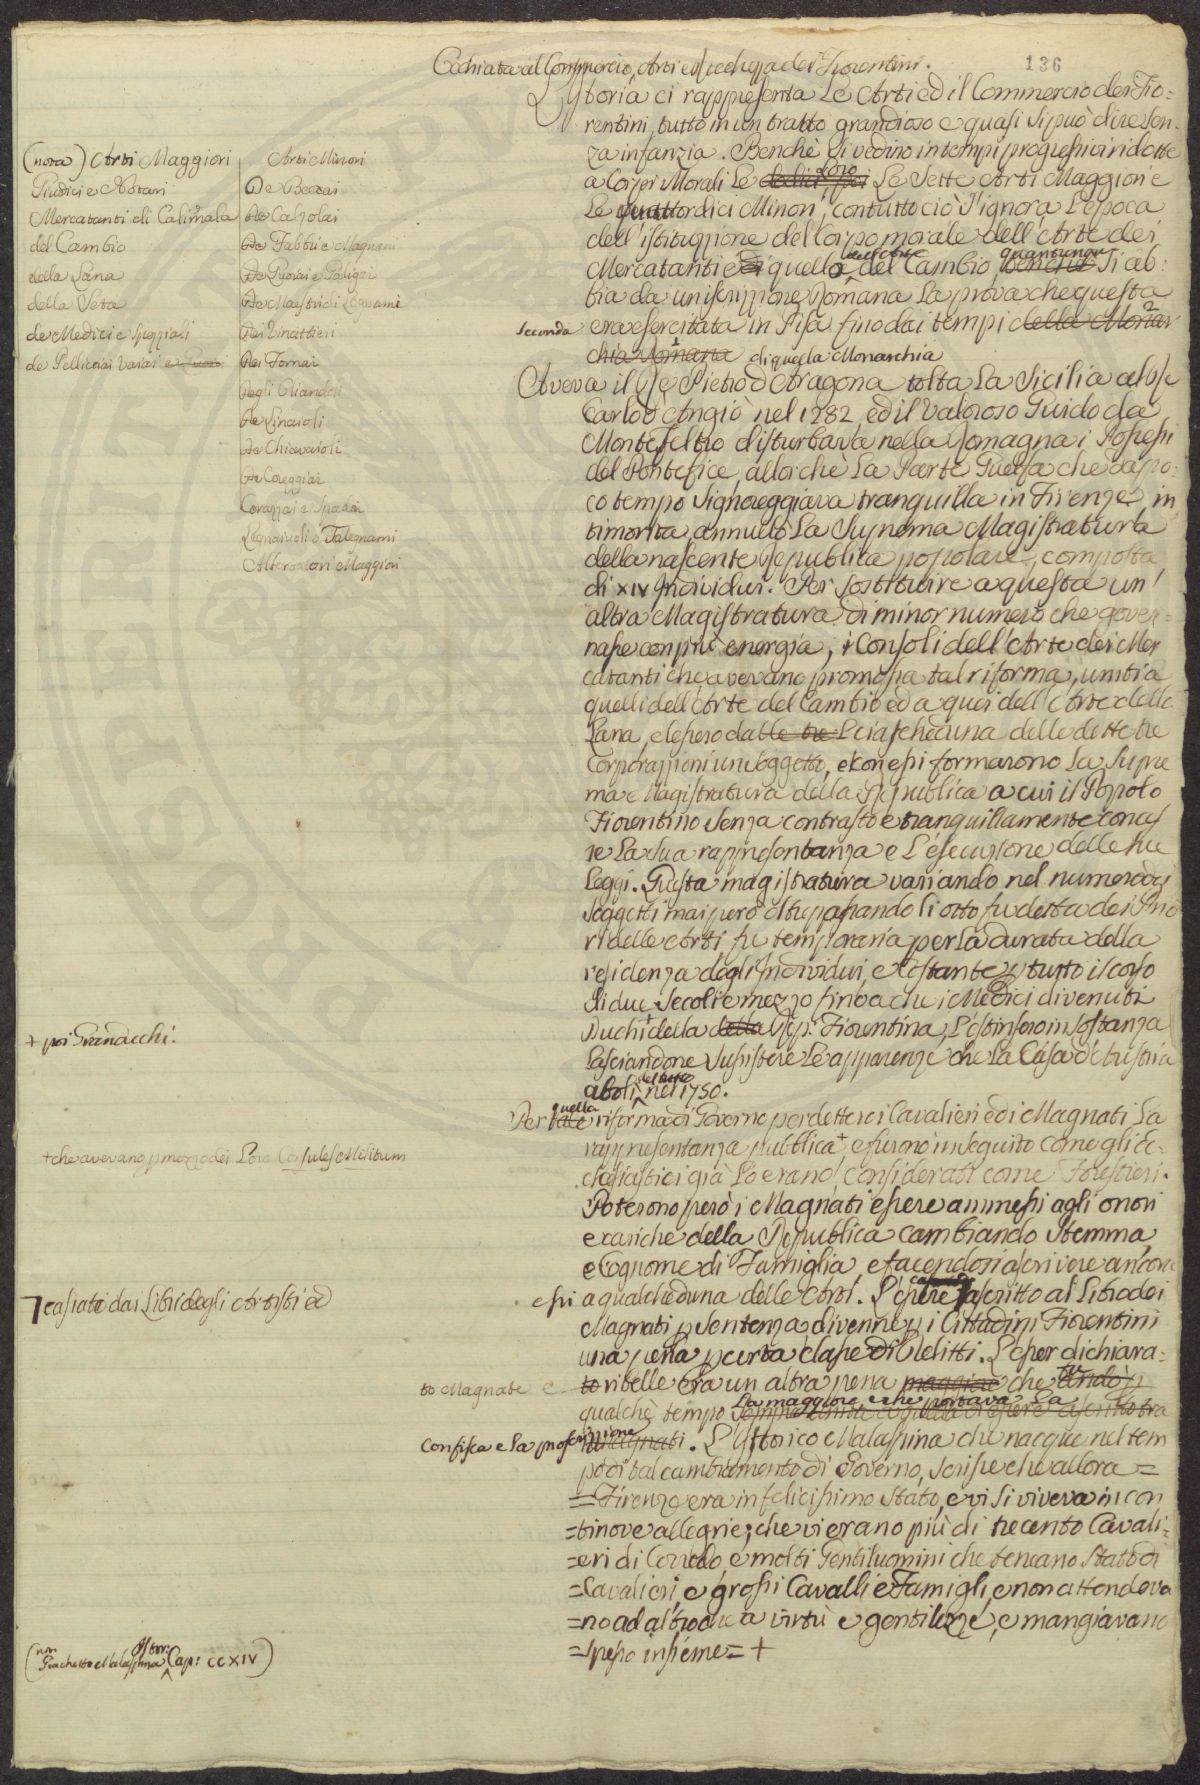 Occhiata al Commercio, Arti e Ricchezza dei Fiorentini.
136
L'Istoria ci rappresenta Le Arti ed il Commercio dei Fio=
rentini, tutto in un tratto grandioso e quasi si può dire sen
za infanzia. Benchè si vedino in tempi progressivi ridotte
a Corpi Morali Le loro Le Sette Arti Maggiori e
Le quattordici Minori, contuttociò s'ignora L'epoca
dell'istituzione del Corpo morale dell'Arte dei
Mercatanti e di quello dell'Arte del Cambio, quantunque benchè si ab=
bia da un'iscrizzione Romana La prova che questa
seconda era esercitata in Pisa fino dai tempi della Monar
chia Romana di quella Monarchia
Aveva il Re Pietro d'Aragona tolta La Sicilia al Re
Carlo d'Angiò nel 1282 ed il Valoroso Guido da
Montefeltro disturbava nella Romagna i Possessi
del Pontefice, allorchè La Parte Guelfa che da po=
co tempo Signoreggiava tranquilla in Firenze in
timorita annullò La Suprema Magistratura
della nascente Republica popolare, composta
di XIV Individui. Per sostituire a questa un'
altra Magistratura di minor numero che gover=
nasse con più energia, i Consoli dell'Arte dei Mer
catanti che avevano promossa tal riforma, uniti a
quelli dell'Arte del Cambio ed a quei dell'Arte della
Lana, elessero dalle tre Loro ciascheduna delle dette tre
Corporazioni un soggetto, e con essi formarono La Supre
ma Magistratura della Republica a cui il Popolo
Fiorentino senza contrasto e tranquillamente concesse
re La sua rappresentanza e L'esecuzione delle sue
Leggi. Questa magistratura variando nel numero dei
Soggetti mai però oltrepassando li otto fu detta dei Prio
ri delle Arti fu temporaria per La durata della
residenza degli Individui, e costante p tutto il corso
di due Secoli e mezzo fino a che i Medici divenuti
Duchi + della della Rep. Fiorentina, L'estinsero in sostanza
Lasciandone sussistere Le apparenze che La Casa d'Austria
abolì del tutto nel 1750.
Per tale quella riforma di Governo perdettero i Cavalieri ed i Magnati La
rappresentanza pubblica + e furono in seguito come gli Ec=
clesiastici già Lo erano, considerati come Forestieri.
Poterono però i Magnati essere ammessi agli onori
e cariche della Republica cambiando Stemma
e Cognome di Famiglia e facendosi ascrivere ancora
essi a qualcheduna delle Arti. L'essere ascritto al Libro dei
Magnati p sentenza divenne p i Cittadini Fiorentini
una pena p certa classe di Delitti. L'esser dichiara=
to Magnate e to ribelle era un altra pena maggiore che andò p
qualche tempo La maggiore e che portava La
confisca e la proscrizione Magnati. L'Istorico Malaspina che nacque nel tem
po di tal cambiamento di Governo, scrisse che allora =
= Firenze era in felicissimo Stato, e vi si viveva in con
=tinove allegrie; che vi erano più di trecento Cavali=
=eri di Corredo e molti Gentiluomini che teneano Stato di
=Cavalieri, e grossi Cavalli e Famigli, e non attendeva
=no ad altro che a virtù e gentilezze, e mangiavano
=spesso insieme= +
(nota) Arti Maggiori
Giudici e Notari
Mercatanti di Calimala
del Cambio
della Lana
della Seta
de Medici e Speziali
de Pellicciai Vaiai
Arti Minori
De Beccai
De Calzolai
De Fabbri e Magnani
De Cuoiai e Galigai
De Maestri di Legname
Dei Vinattieri
Dei Fornai
degli Oliandoli
De Linaioli
De Chiavaioli
De Coreggiai
Corazzai e Spadai
Legnaioli e Falegnami
Albergatori Maggiori
+ poi Granduchi.
+ che avevano p mezzo dei Loro Consules Militum
cassati dai Libri degli Artisti ed
(Giachetto Malaspina Istor: Cap: CCXIV)